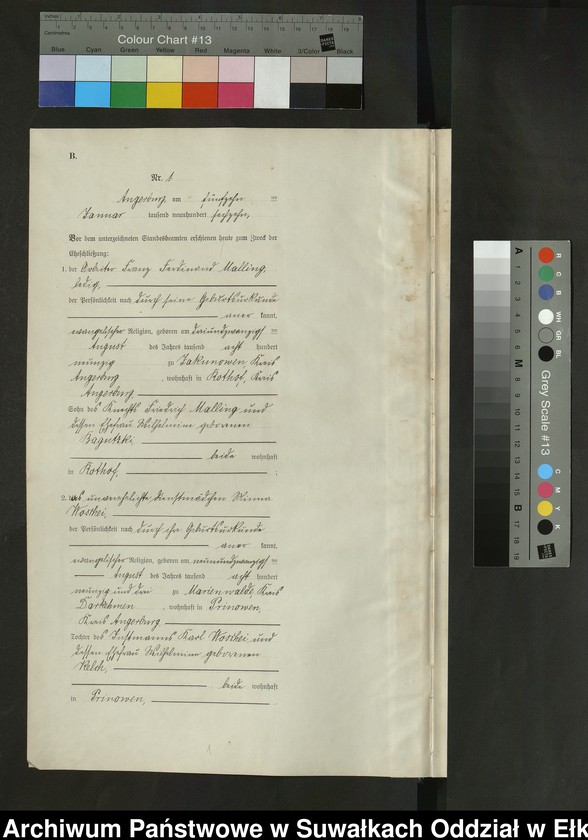 Inches
Centimetres
Colour Chart #13
Blue Cyan Green Yellow Red Magenta White 3/Color Black
B.
Nr. 1
Angerburg am fünfzehn
Januar tausend neunhundert sechzehn,
Vor dem unterzeichneten Standesbeamten erschienen heute zum Zweck der
Eheschließung:
1. der Arbeiter Franz Ferdinand Malling,
ledig,
der Persönlichkeit nach durch seine Geburtsurkunde
aner kannt,
evangelischer Religion, geboren am dreiundzwanzigst
August des Jahres tausend acht hundert
neunzig zu Jakunowen, Kreis
Angerburg, wohnhaft in Rothof, Kreis
Angerburg
Sohn des Knechts Friedrich Malling und
dessen Ehefrau Wilhelmine geborenen
beide wohnhaft
in Rothof,
2. das unverehelichte Dienstmädchen Minna
der Persönlichkeit nach durch ihre Geburtsurkunde
aner kannt,
evangelischer Religion, geboren am neunundzwanzigst
August des Jahres tausend acht hundert
neunzig und drei zu Marienwalde, Kreis
Darkehmen, wohnhaft in Prinowen,
Kreis Angerburg
Tochter des Instmanns Karl und
dessen Ehefrau Wilhelmine geborenen
beide wohnhaft
in Prinowen,
A 1 2 3 4 5 6 M 8 9 10 11 12 13 14 15 B 17 18 19
R G B WH GR BL
Grey Scale #13
C M Y K
Archiwum Państwowe w Suwałkach Oddział w Ełk